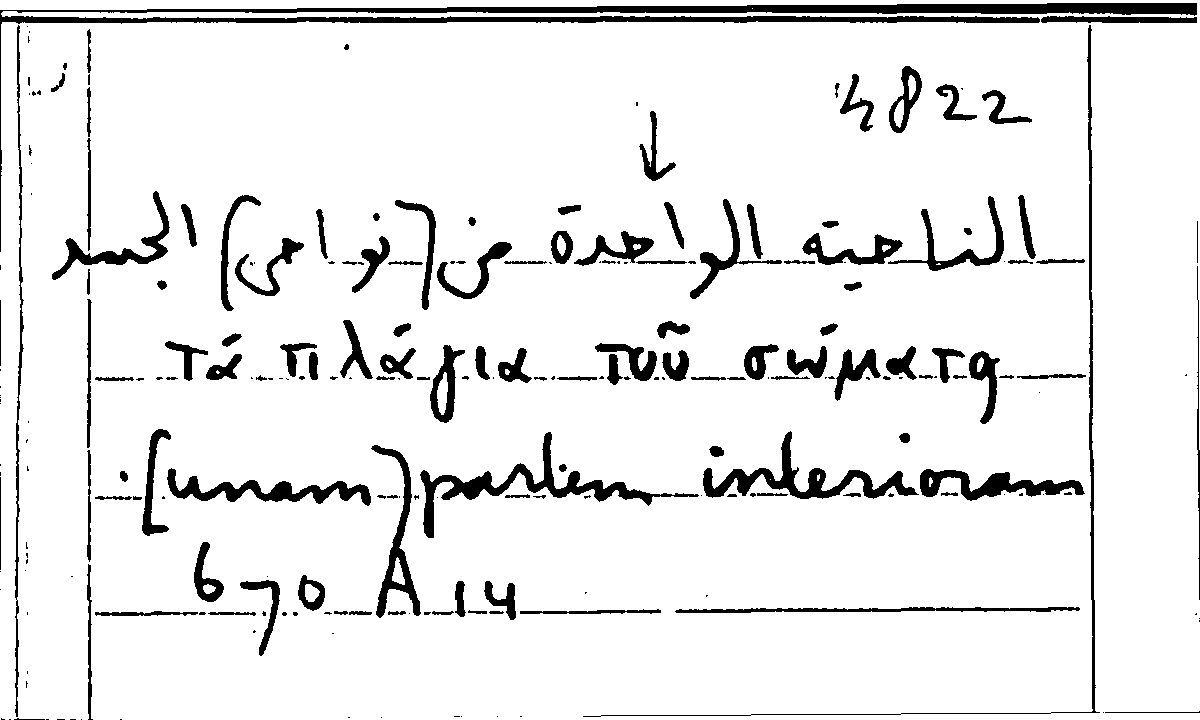 4822
↓
الناحية الواحدة من (نواحى) الجسد
τὰ πλάγια τοῦ σώματα
[unam) partem interioram
670 A 14